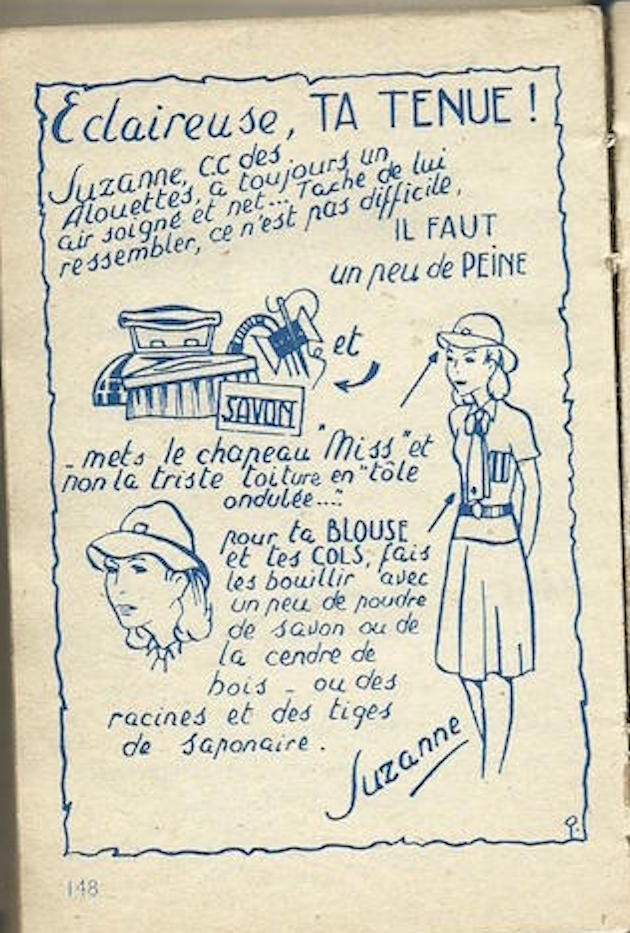 Eclaireuse, TA TENUE !
Suzanne, C.C des
Alouettes, a toujours un
air soigné et net... Tache de lui
ressembler, ce n'est pas difficile,
IL FAUT
un peu de PEINE
et
SAVON
- mets le chapeau "Miss" et
non la triste toiture en "tôle
ondulée..."
pour ta BLOUSE
et tes COLS, fais
les bouillir avec
un peu de poudre
de savon ou de
la cendre de
bois - ou des
racines et des tiges
de saponaire.
Suzanne
148